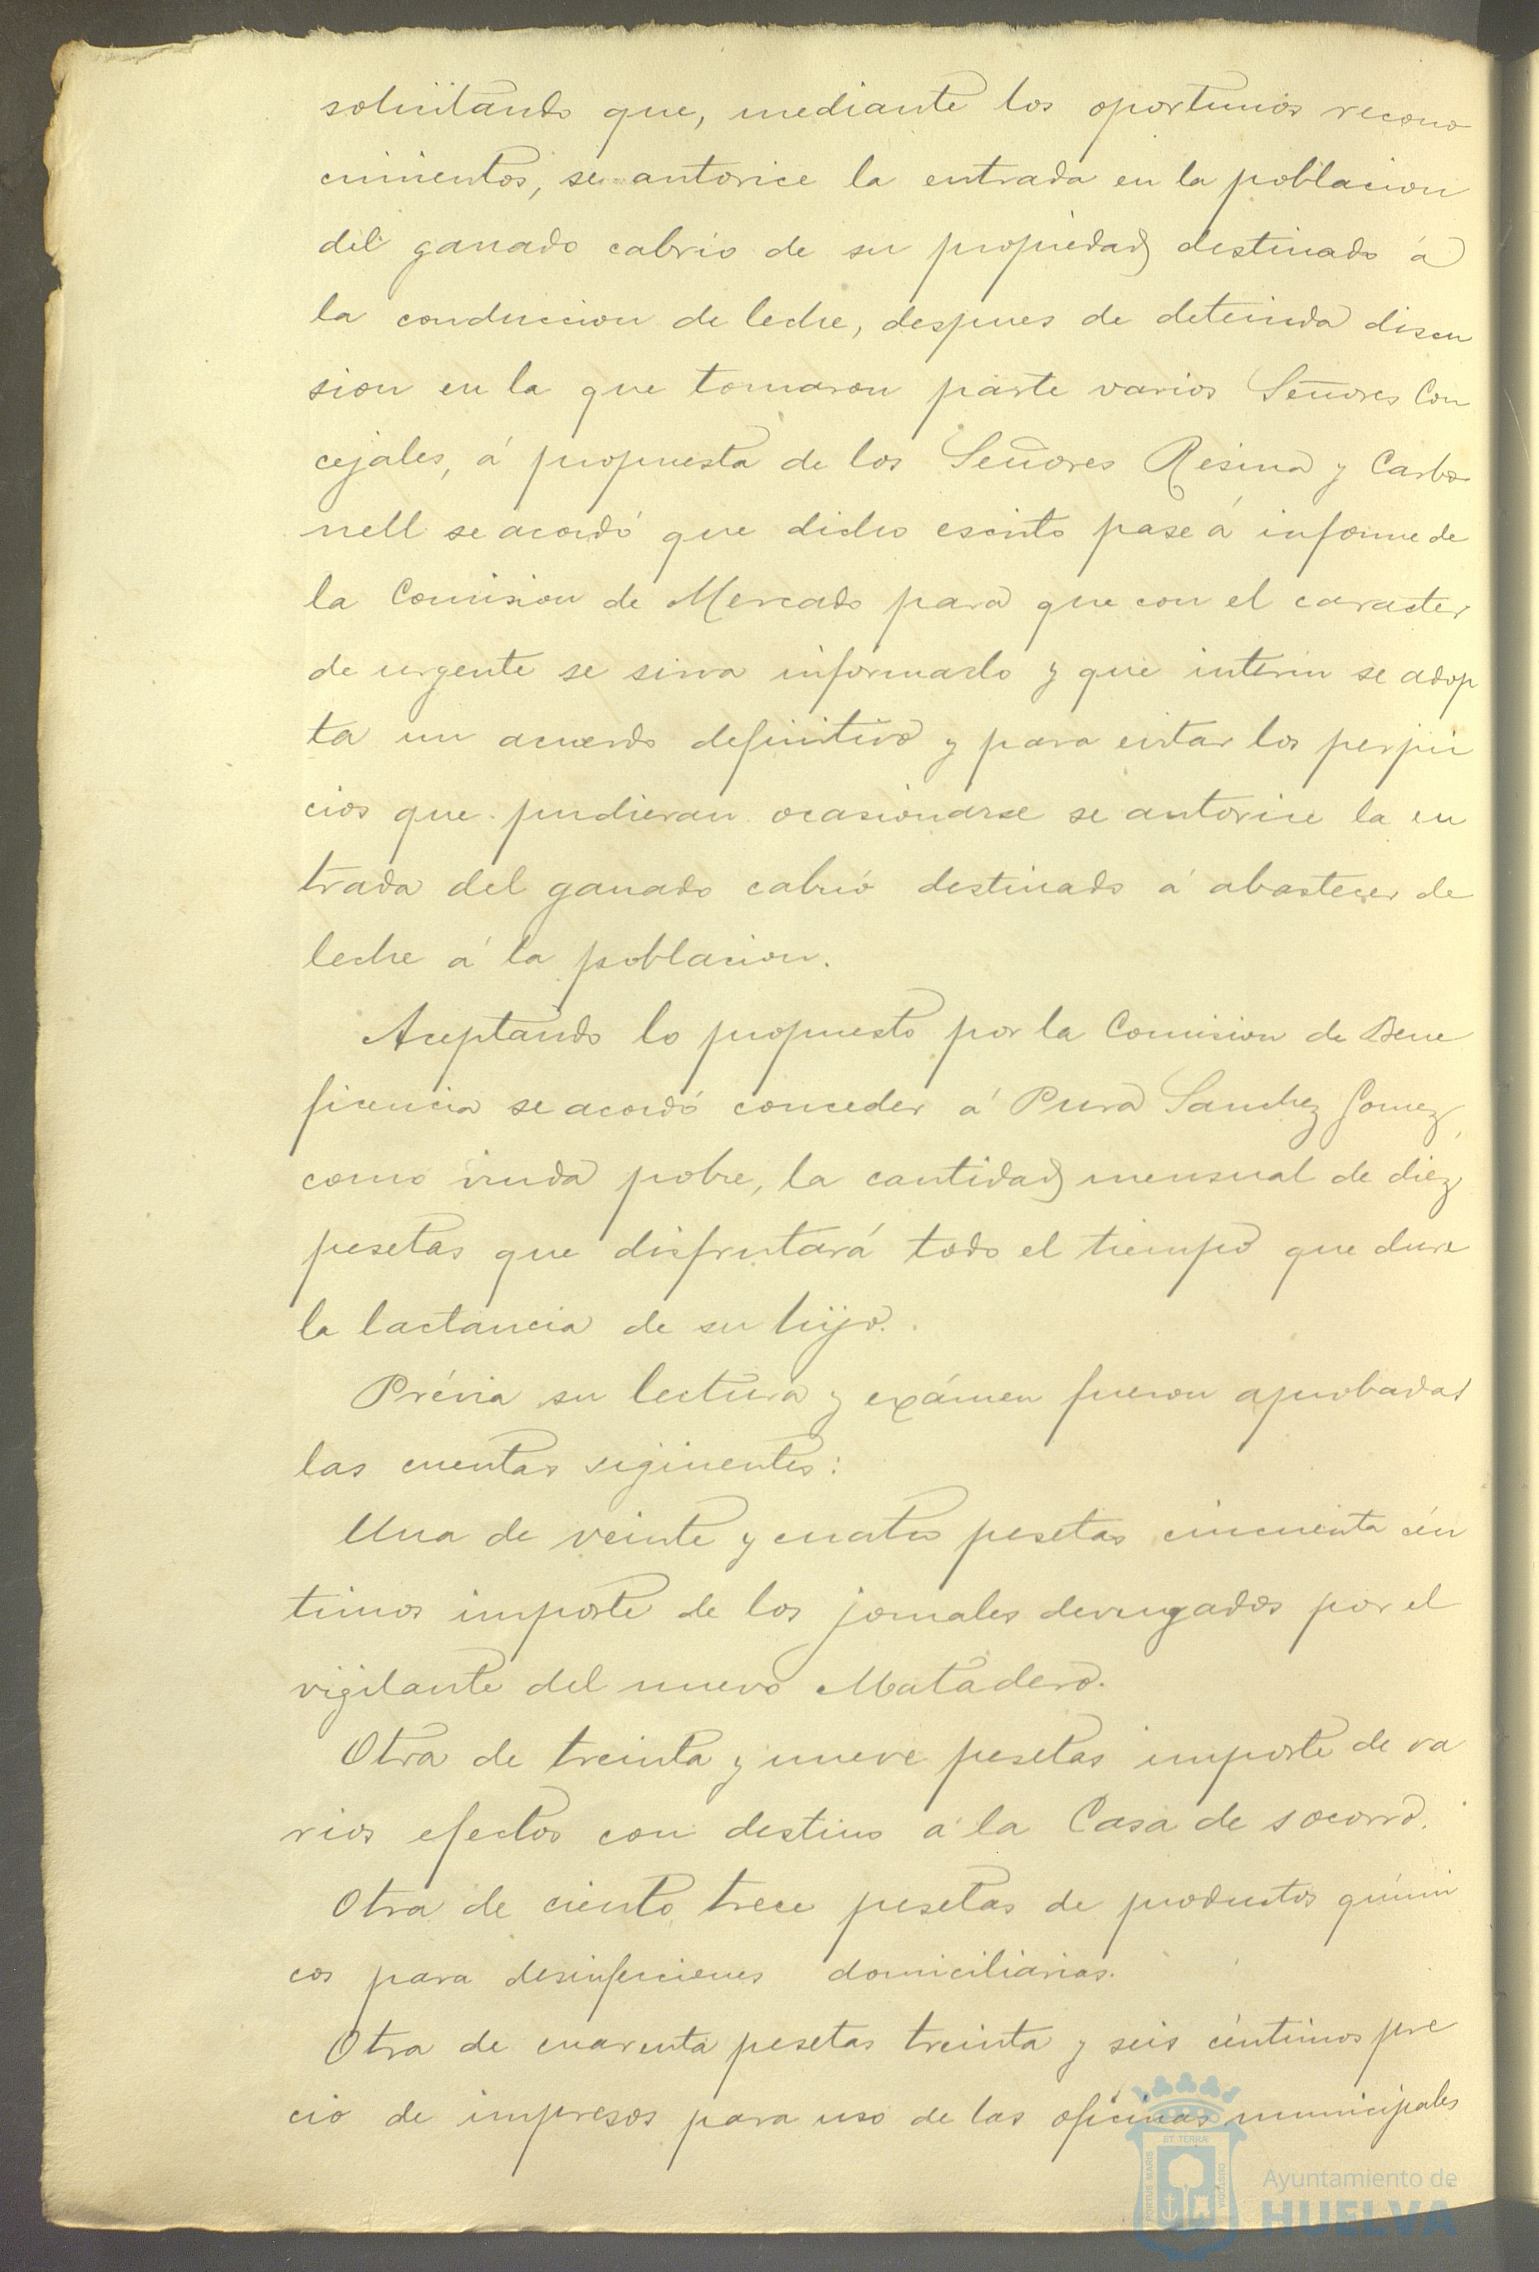 solicitando que, mediante los oportunos recono
cimientos, se autorice la entrada en la poblacion
del ganado cabrio de su propiedad destinado á
la conduccion de leche, despues de detenida discu
sion en la que tomaron parte varios Señores Con
cejales, á propuesta de los Señores Resina y Carbo
nell se acordó que dicho escrito pase á informe de
la Comision de Mercado para que con el caracter
de urgente se sirva informarlo y que interin se adop
ta un acuerdo definitivo y para evitar los perjui
cios que pudieran ocasionarse se autorice la en
trada del ganado cabrio destinado á abastecer de
leche á la poblacion.
Aceptando lo propuesto por la Comision de Bene
ficencia se acordó conceder á Pura Sanchez Gomez,
como viuda pobre, la cantidad mensual de diez
pesetas que disfrutará todo el tiempo que dure
la lactancia de su hijo.
Prévia su lectura y exámen fueron aprobadas
las cuentas siguientes:
Una de veinte y cuatro pesetas cincuenta cén
timos importe de los jornales devengados por el
vigilante del nuevo Matadero.
Otra de treinta y nueve pesetas importe de va
rios efectos con destino á la Casa de socorro.
Otra de ciento trece pesetas de productos quími
cos para desinfecciones domiciliarias.
Otra de cuarenta pesetas treinta y seis céntimos pre
cio de impresos para uso de las oficinas municipales
PORTUS MARIS
ET TERRÆ
CUSTODIA
Ayuntamiento de
HUELVA